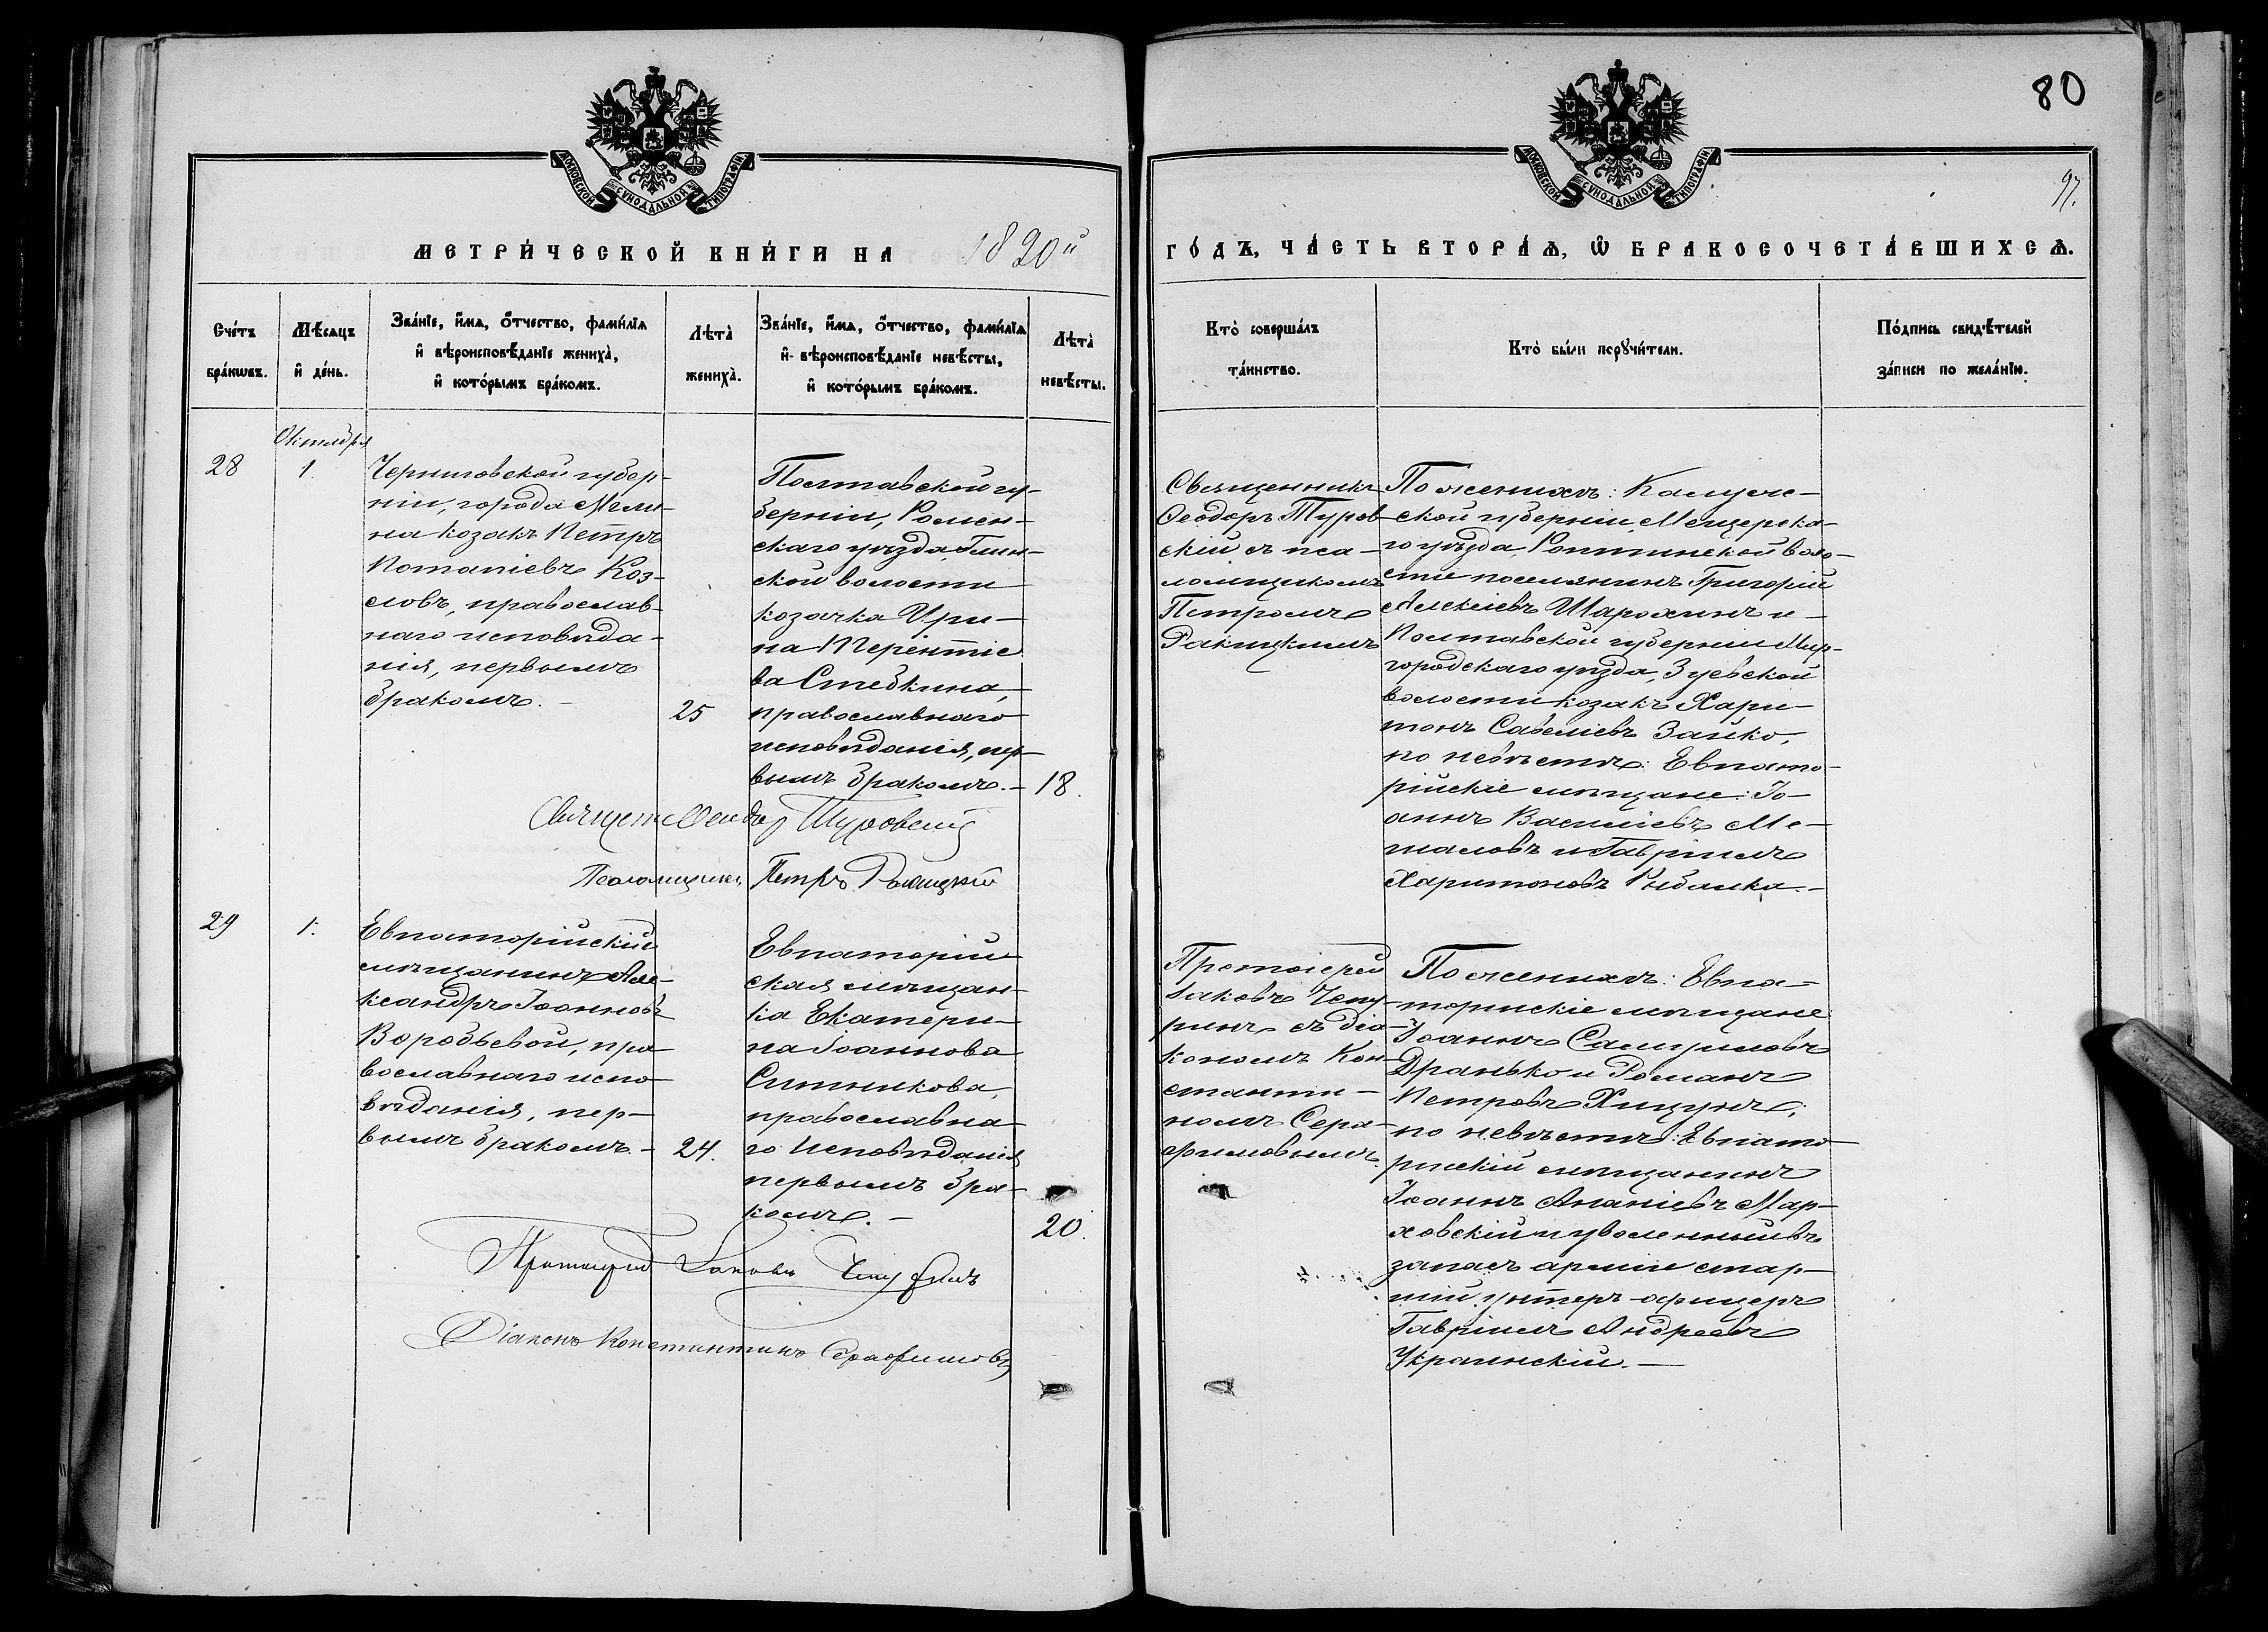 80
97.
МОСКОВСКОЙ СѴНОДАЛЬНОЙ ТИПОГРАФІИ
МОСКОВСКОЙ СѴНОДАЛЬНОЙ ТИПОГРАФІИ
МЕТРИ́ЧЕСКОЙ КНИ́ГИ НА 1890й
ГО́ДЪ, ЧА́СТЬ ВТОРА́Ѧ, Ѡ҆ БРАКОСОЧЕТА́ВШИХСѦ.
Счéтъ бра́кѡвъ.
Мѣ́сяцъ и҆ де́нь.
Зва́нїе, и҆́мѧ, ѻ҆́тчество, фами́лїѧ
и҆ вѣроисповѣ́данїе жениха̀,
и҆ кото́рымъ бра́комъ.
Лѣта̀ жениха̀.
Зва́нїе, и҆́мѧ, ѻ҆́тчество, фами́лїѧ
и҆ вѣроисповѣ́данїе невѣ́сты,
и҆ кото́рымъ бра́комъ.
Лѣта̀ невѣ́сты.
Кто̀ соверша́лъ та́инство.
Кто̀ бы́ли порꙋчи́тели.
По́дпись свидѣ́телей за́писи по жела́нїю.
28
Октября
1.
Черниговской губер-
ніи, города Мгли-
на козакъ Петръ
Потапіевъ Коз-
ловъ, православ-
наго исповѣда-
нія, первымъ
бракомъ. -
25
Полтавской гу-
берніи, Ромен-
скаго уѣзда Глин-
ской волости
козачка Ири-
на Терентіе
ва Стебкина,
православнаго
исповѣданія, пер-
вымъ бракомъ. -
18.
Священникъ
Ѳеодоръ Туров-
скій съ пса-
ломщикомъ
Петромъ
Ракицкимъ
По женихѣ: Калуж-
ской губерніи, Мещевска-
го уѣзда, воло-
сти поселянинъ Григорій
Алексіевъ Шарохинъ и
Полтавской губерніи Мир-
городскаго уѣзда, Зуевской
волости козакъ Хари-
тонъ Савеліевъ Зайко;
по невѣстѣ: Евпато-
рійскіе мѣщане: Іо-
аннъ Василіевъ Ме-
шаловъ и Гавріилъ
Харитоновъ Рыбалка. -
Священ. Ѳеодоръ Туровскій
Псаломщикъ Петръ Ракицкій
29
1.
Евпаторійскій
мѣщанинъ Але-
ксандръ Іоанновъ
Воробьевой, пра-
вославнаго испо-
вѣданія, пер-
вымъ бракомъ. -
24.
Евпаторій-
ская мѣщан-
ка Екатери-
на Іоаннова
Ситникова,
православна-
го исповѣданія
первымъ бра-
комъ. -
20.
Протоіерей
Іаковъ Чепу-
ринъ съ діа-
кономъ Кон-
станти-
номъ Сера-
фимовымъ.
По женихѣ: Евпа-
торійскіе мѣщане
Іоаннъ Самуиловъ
Дранько и Романъ
Петровъ Хицунъ;
по невѣстѣ: Евпато-
рійскій мѣщанинъ
Іоаннъ Ананіевъ Мар-
ховскій и уволенный въ
запасъ арміи стар-
шій унтеръ-офицеръ
Гавріилъ Андреевъ
Украинскій. -
Протоіерей Іаковъ Чепуринъ
Діаконъ Константинъ Серафимовъ